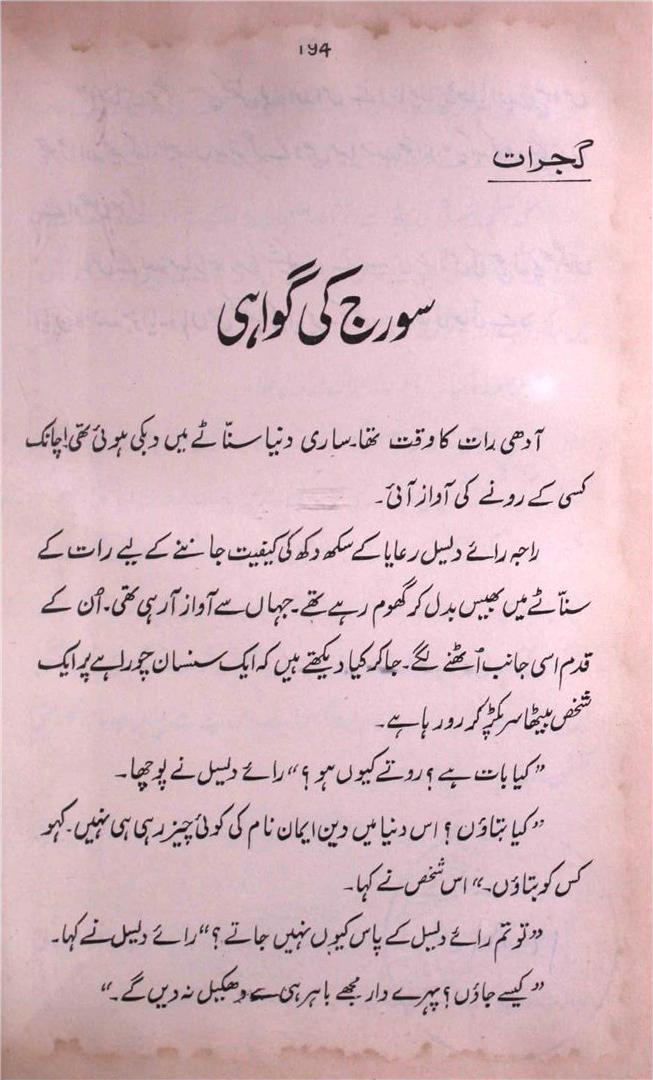 ۱۹۴
گجرات
سورج کی گواہی
آدھی رات کا وقت تھا۔ ساری دنیا سنّاٹے میں دبکی ہوئی تھی۔ اچانک
کسی کے رونے کی آواز آئی۔
راجہ رائے دلیل رعایا کے سکھ دکھ کی کیفیت جاننے کے لیے رات کے
سنّاٹے میں بھیس بدل کر گھوم رہے تھے۔ جہاں سے آواز آ رہی تھی۔ اُن کے
قدم اسی جانب اُٹھنے لگے۔ جا کر کیا دیکھتے ہیں کہ ایک سنسان چوراہے پر ایک
شخص بیٹھا سر پکڑ کر رو رہا ہے۔
”کیا بات ہے؟ روتے کیوں ہو؟“ رائے دلیل نے پوچھا۔
”کیا بتاؤں؟ اس دنیا میں دین ایمان نام کی کوئی چیز رہی ہی نہیں۔ کہو
کس کو بتاؤں۔“ اس شخص نے کہا۔
”تو تم رائے دلیل کے پاس کیوں نہیں جاتے؟“ رائے دلیل نے کہا۔
”کیسے جاؤں؟ پہرے دار مجھے باہر ہی سے دھکیل نہ دیں گے۔“